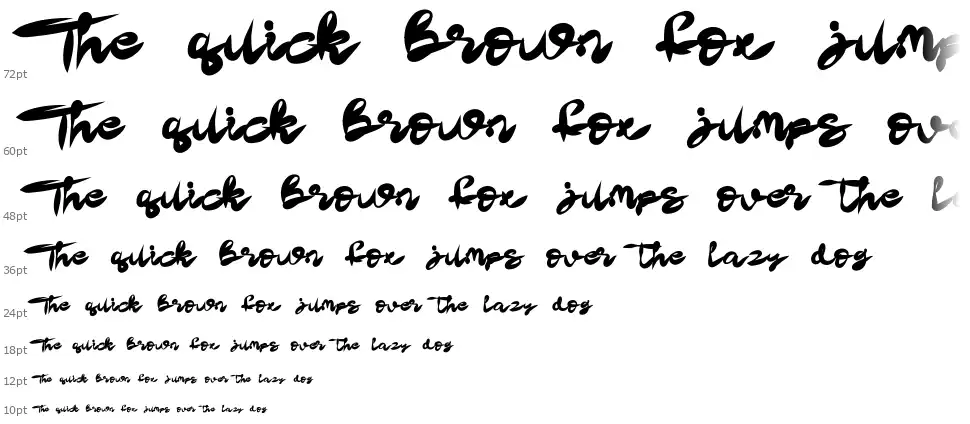 The quick brown fox jump
72pt
The quick brown fox jumps ov
60pt
The quick brown fox jumps over the l
48pt
The quick brown fox jumps over the lazy dog
36pt
The quick brown fox jumps over the lazy dog
24pt
The quick brown fox jumps over the lazy dog
18pt
The quick brown fox jumps over the lazy dog
12pt
The quick brown fox jumps over the lazy dog
10pt